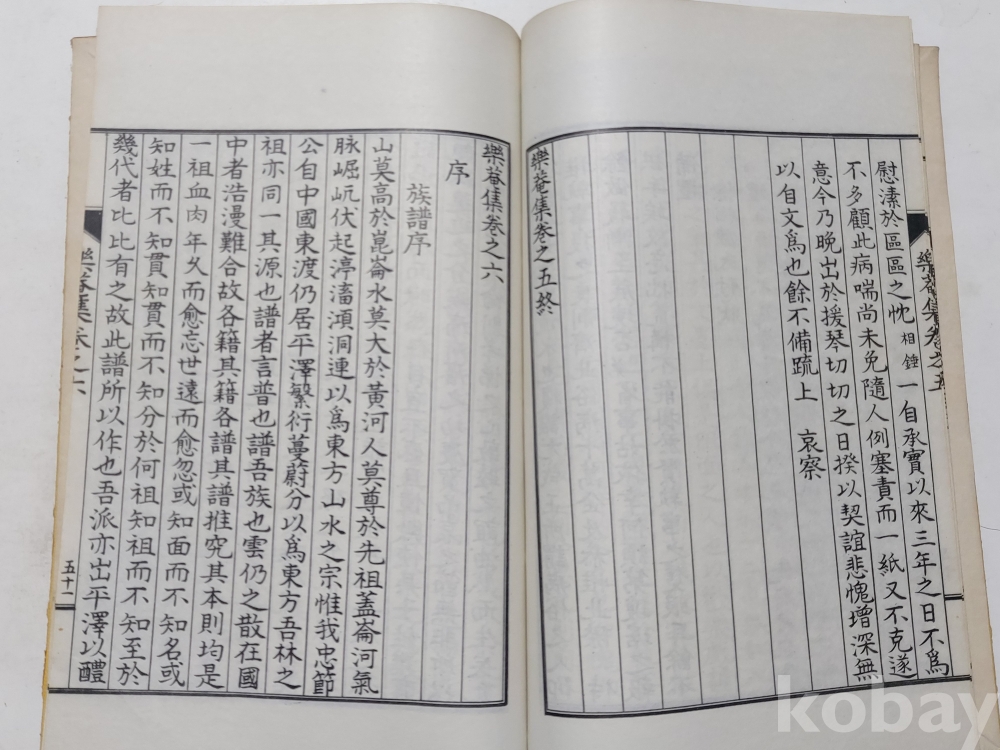 慰溸於區區之忱 相鍾 一自承實以來三年之日不爲
不多顧此病喘尚未免隨人例塞責而一紙又不克遂
意今乃晚出於援琴切切之日揆以契誼悲愧增深無
以自文爲也餘不備疏上 哀察
樂菴集卷之五終
樂菴集卷之五
樂菴集卷之六
序
族譜序
山莫高於崑崙水莫大於黃河人莫尊於先祖蓋崙河氣
脉崛屼伏起渟滀澒洞連以爲東方山水之宗惟我忠節
公自中國東渡仍居平澤繁衍蔓蔚分以爲東方吾林之
祖亦同一其源也譜者言普也譜吾族也雲仍之散在國
中者浩漫難合故各籍其籍各譜其譜推究其本則均是
一祖血肉年久而愈忘世遠而愈忽或知面而不知名或
知姓而不知貫知貫而不知分於何祖知祖而不知至於
幾代者比比有之故此譜所以作也吾派亦出平澤以醴
樂菴集卷之六
五十一
kobay